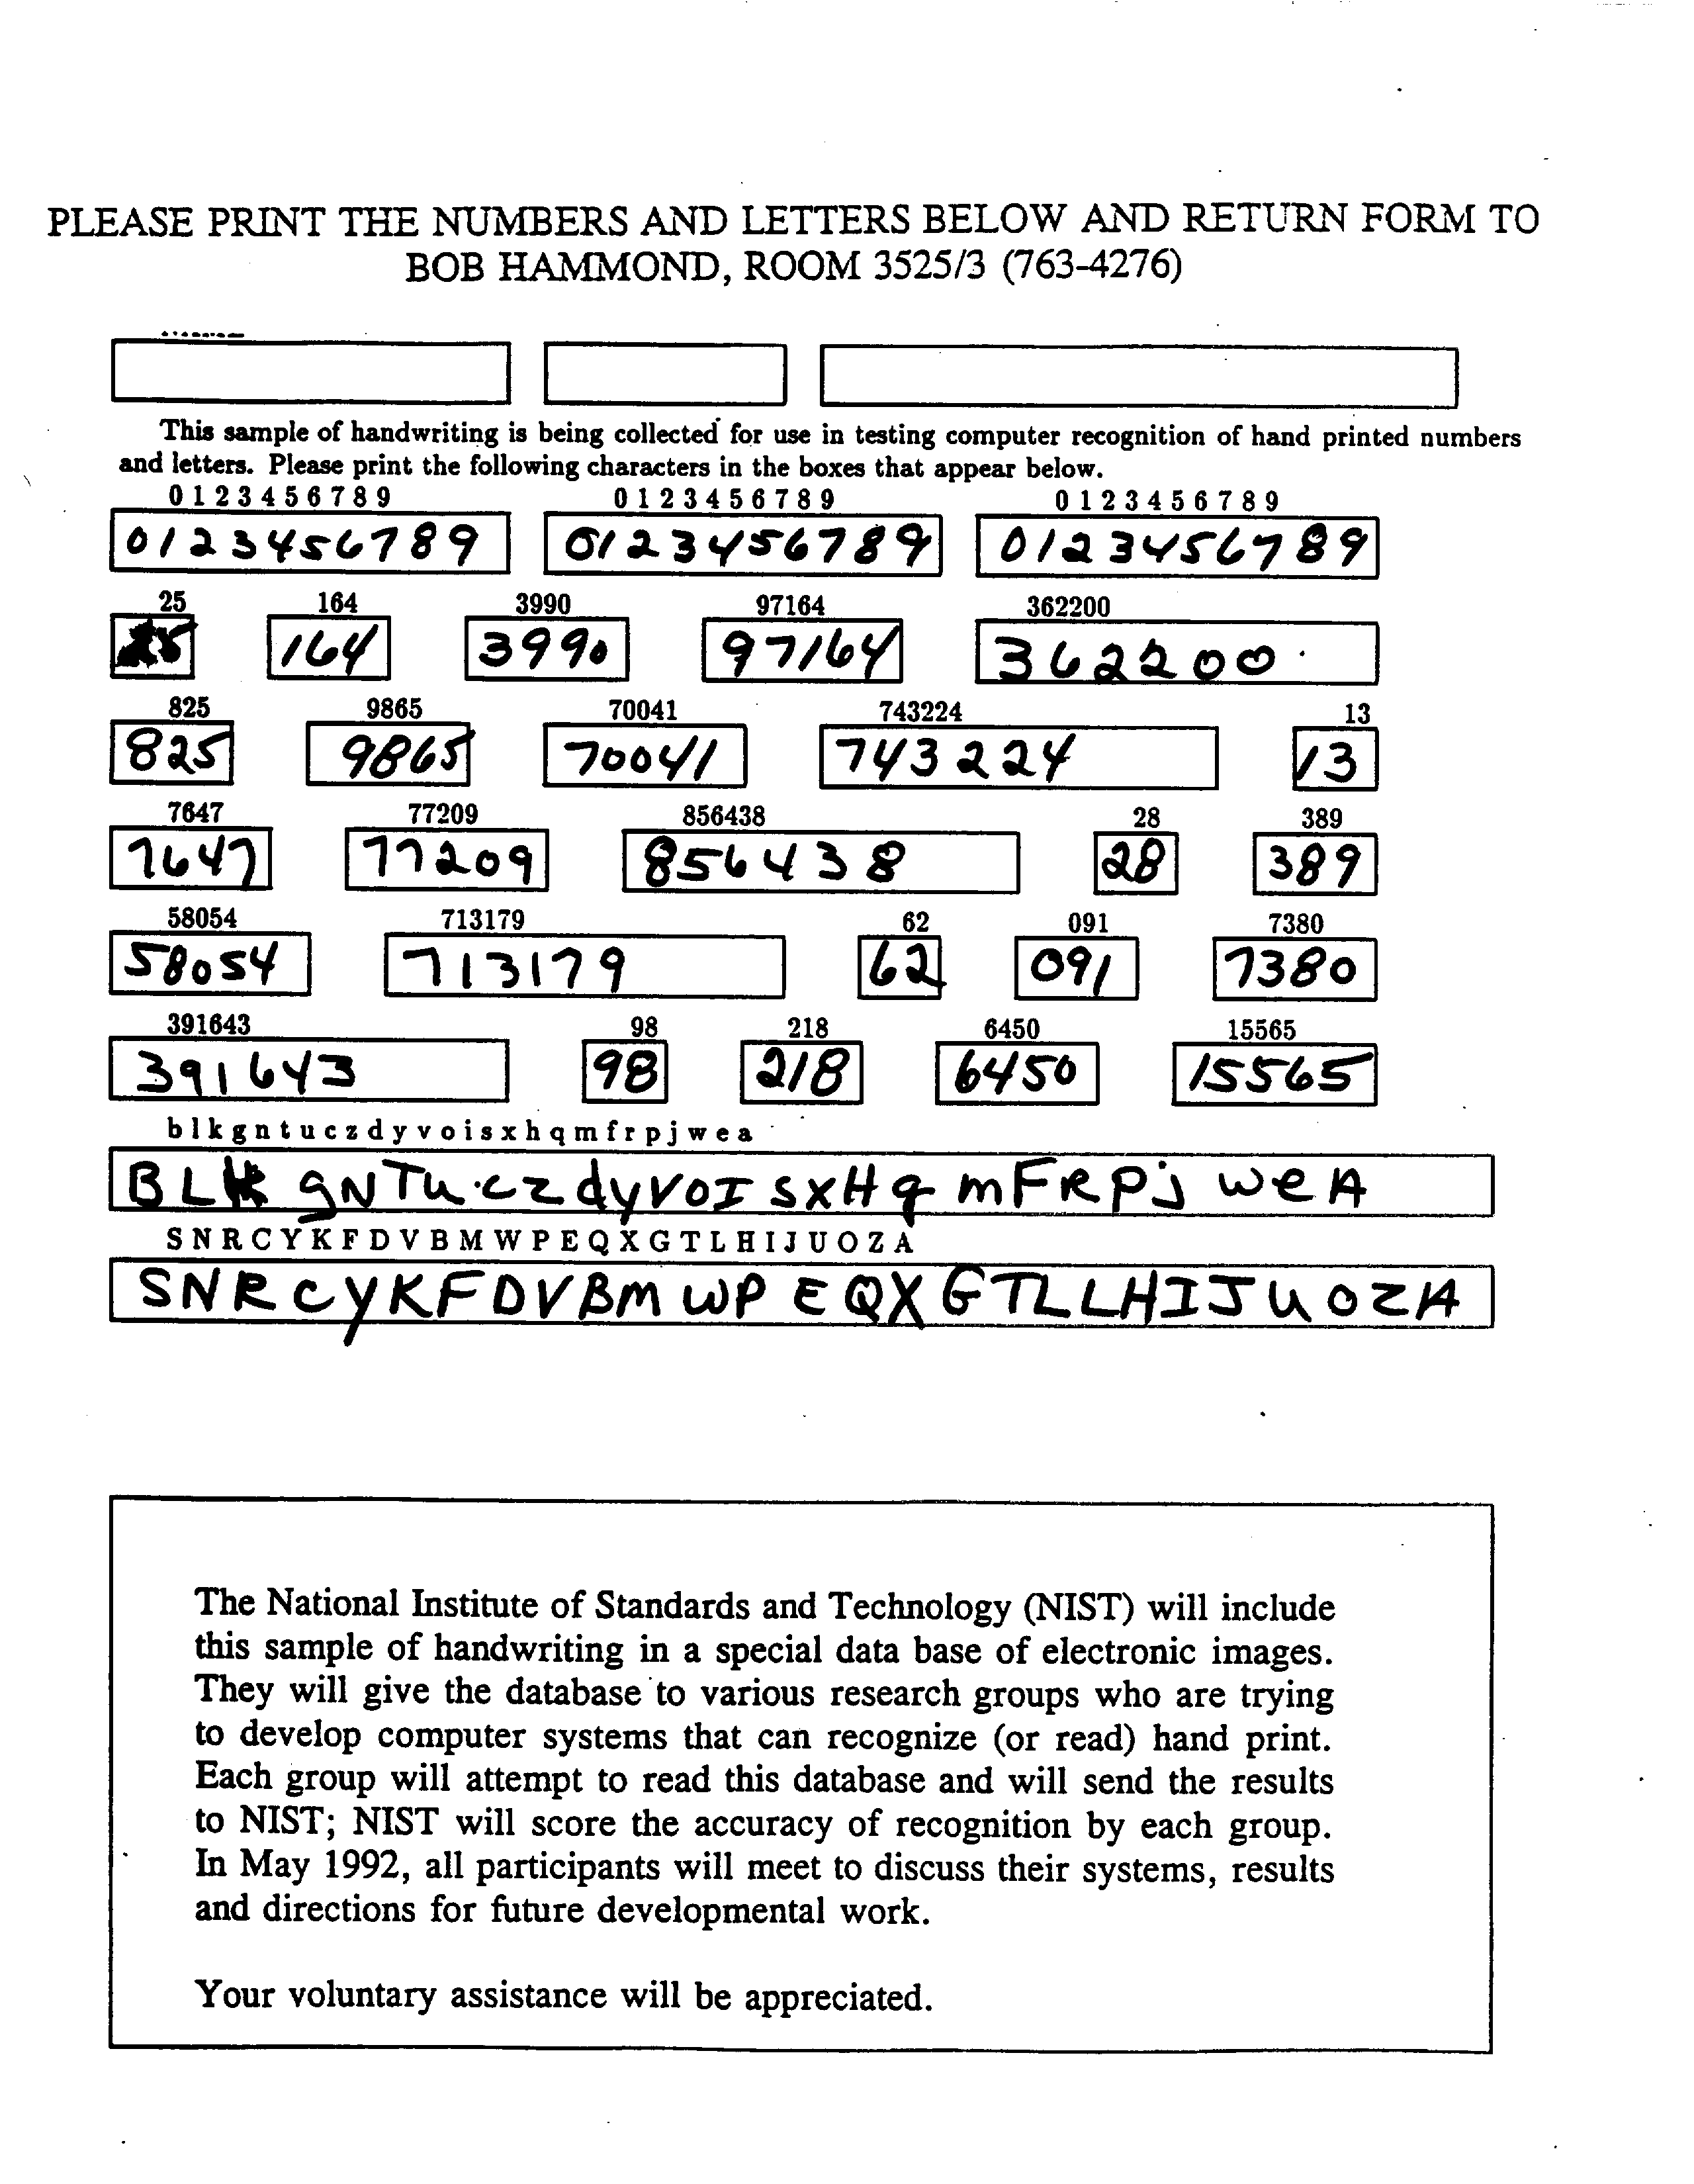 PLEASE PRINT THE NUMBERS AND LETTERS BELOW AND RETURN FORM TO
BOB HAMMOND, ROOM 3525/3 (763-4276)
This sample of handwriting is being collected for use in testing computer recognition of hand printed numbers
and letters. Please print the following characters in the boxes that appear below.
0 1 2 3 4 5 6 7 8 9 0 1 2 3 4 5 6 7 8 9 0 1 2 3 4 5 6 7 8 9
0123456789 0123456789 0123456789
25 164 3990 97164 362200
25 164 3990 97164 362200
825 9865 70041 743224 13
825 9865 70041 743224 13
7647 77209 856438 28 389
7647 77209 856438 28 389
58054 713179 62 091 7380
58054 713179 62 091 7380
391643 98 218 6450 15565
391643 98 218 6450 15565
b l k g n t u c z d y v o i s x h q m f r p j w e a
BLK gNTu czdyVOI SXHq mFRPj weA
S N R C Y K F D V B M W P E Q X G T L H I J U O Z A
SNRCYKFDVBMWPEQXGTLLHIJUOZA
The National Institute of Standards and Technology (NIST) will include
this sample of handwriting in a special data base of electronic images.
They will give the database to various research groups who are trying
to develop computer systems that can recognize (or read) hand print.
Each group will attempt to read this database and will send the results
to NIST; NIST will score the accuracy of recognition by each group.
In May 1992, all participants will meet to discuss their systems, results
and directions for future developmental work.
Your voluntary assistance will be appreciated.